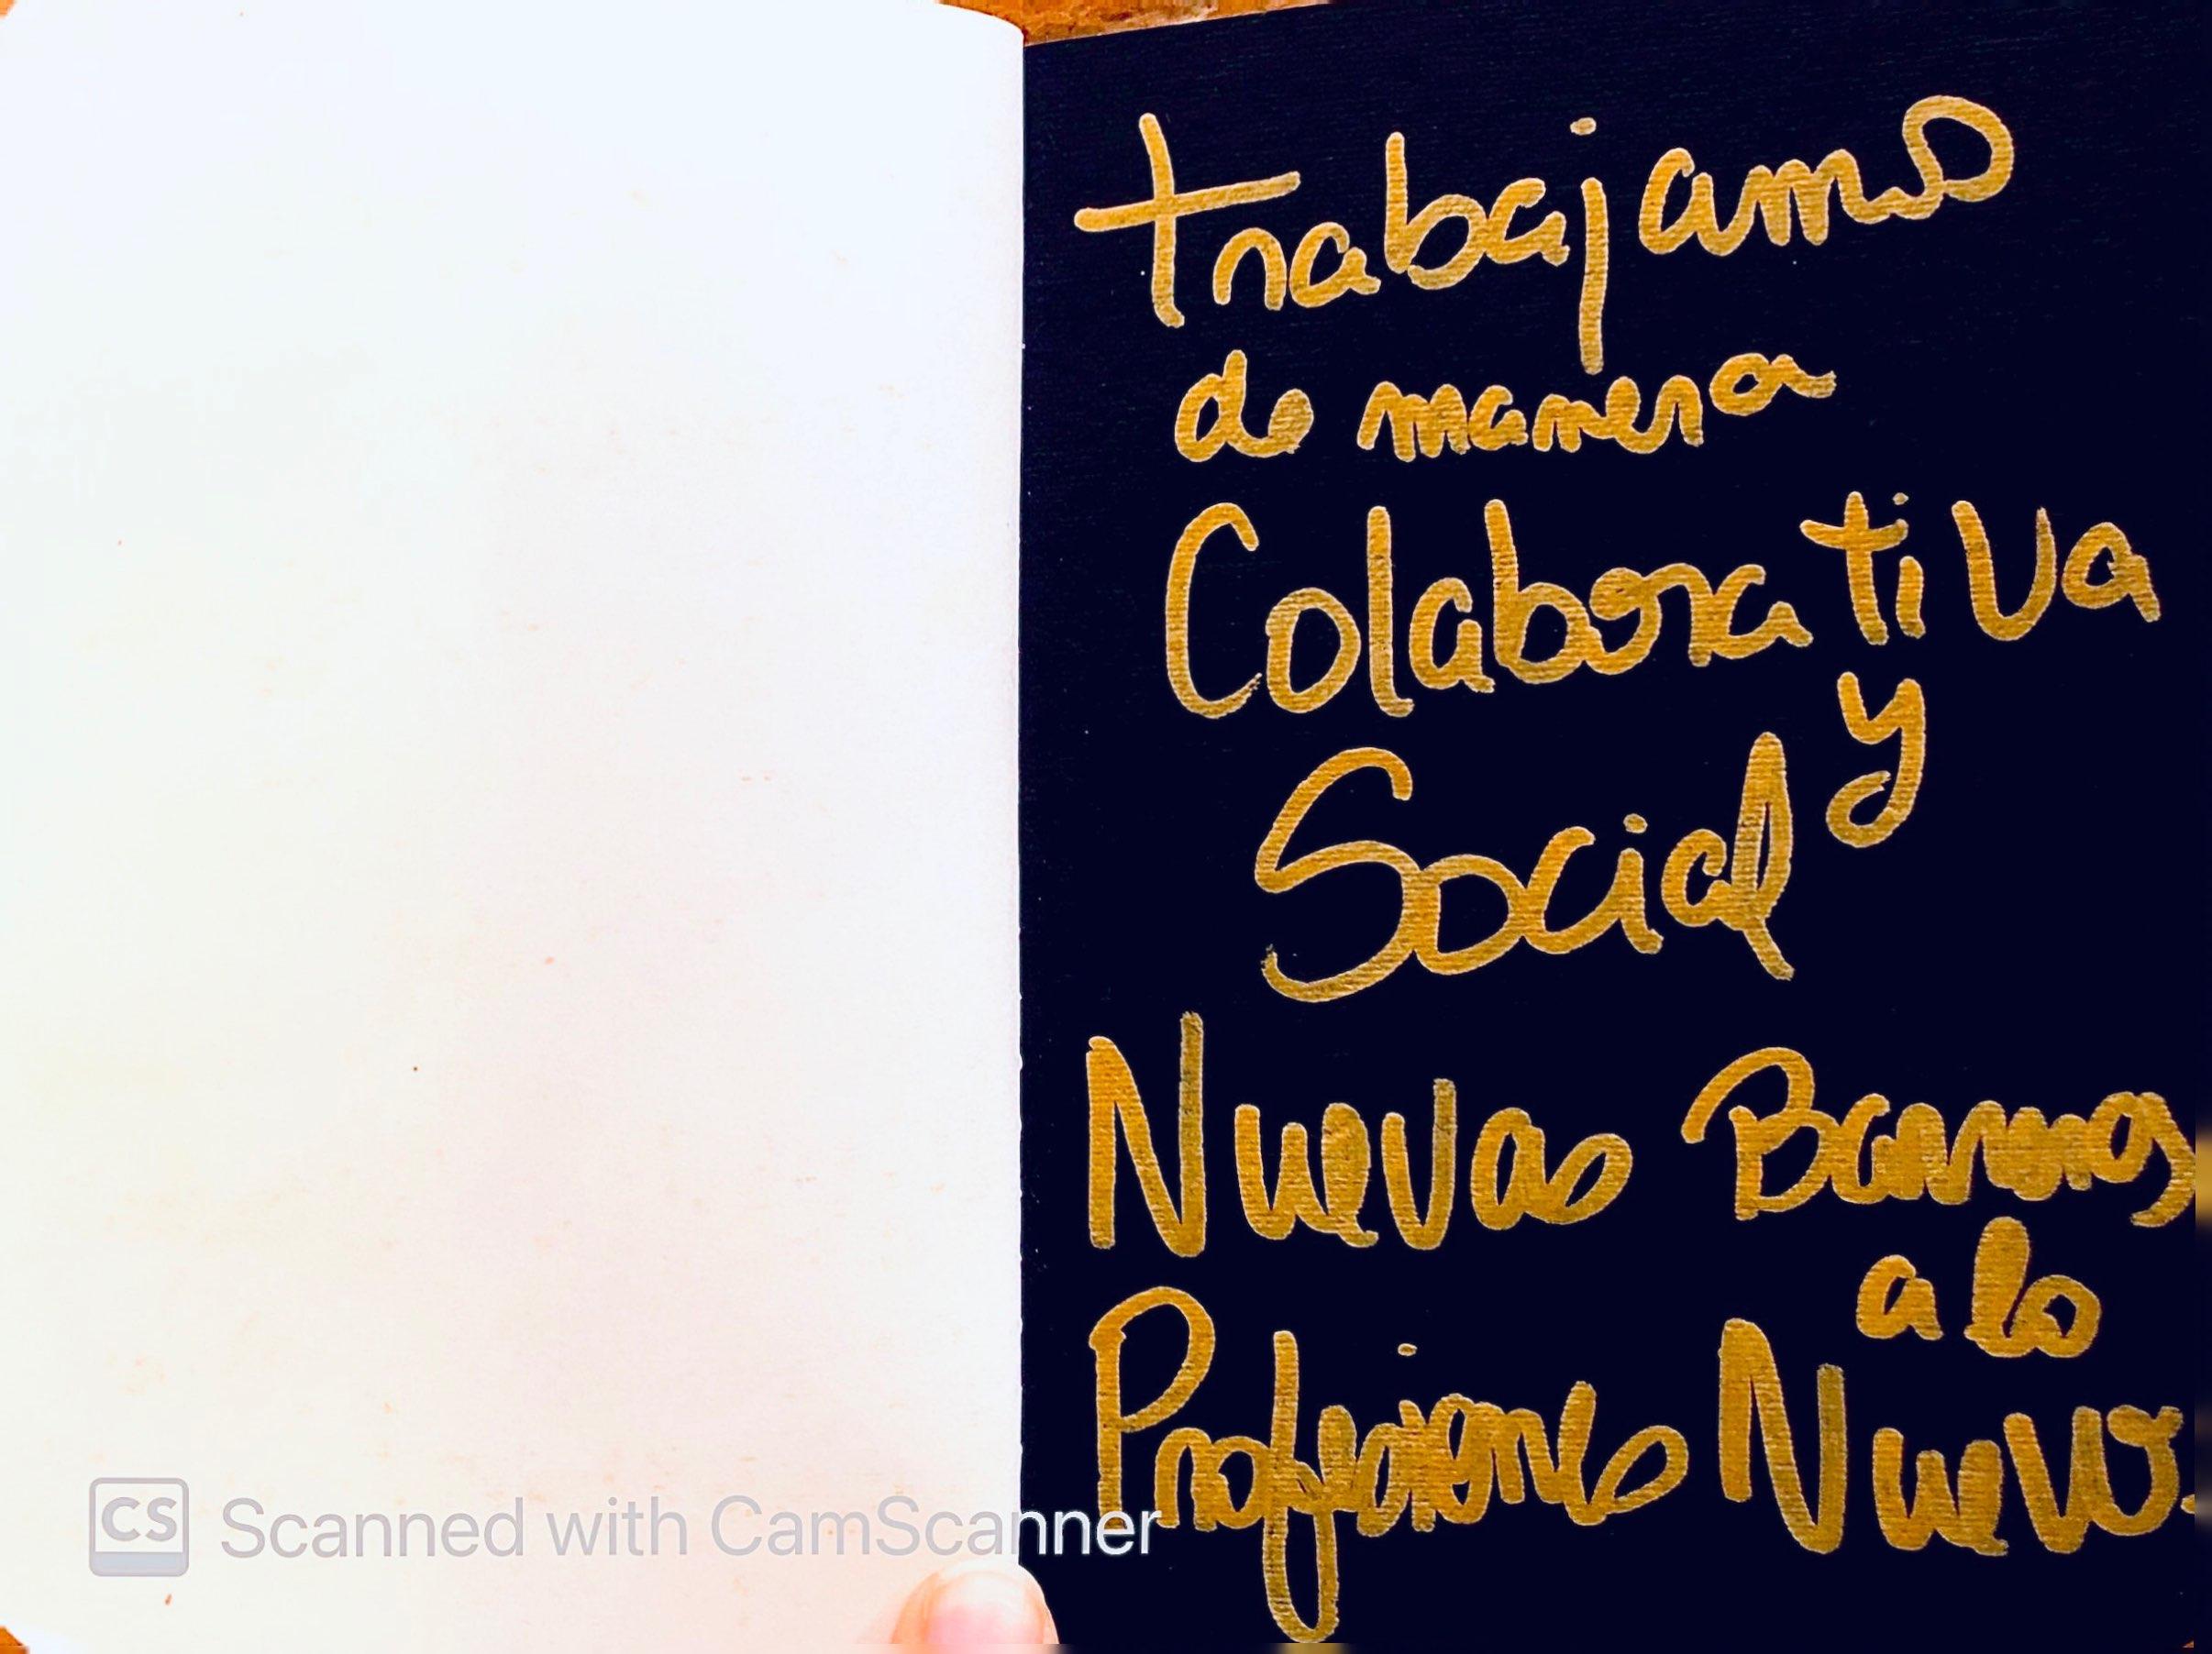 trabajamos
de manera
Colaborativa
y
Social
Nuevas Barreras
a lo
Profesiones Nuevo.
Scanned with CamScanner
CS